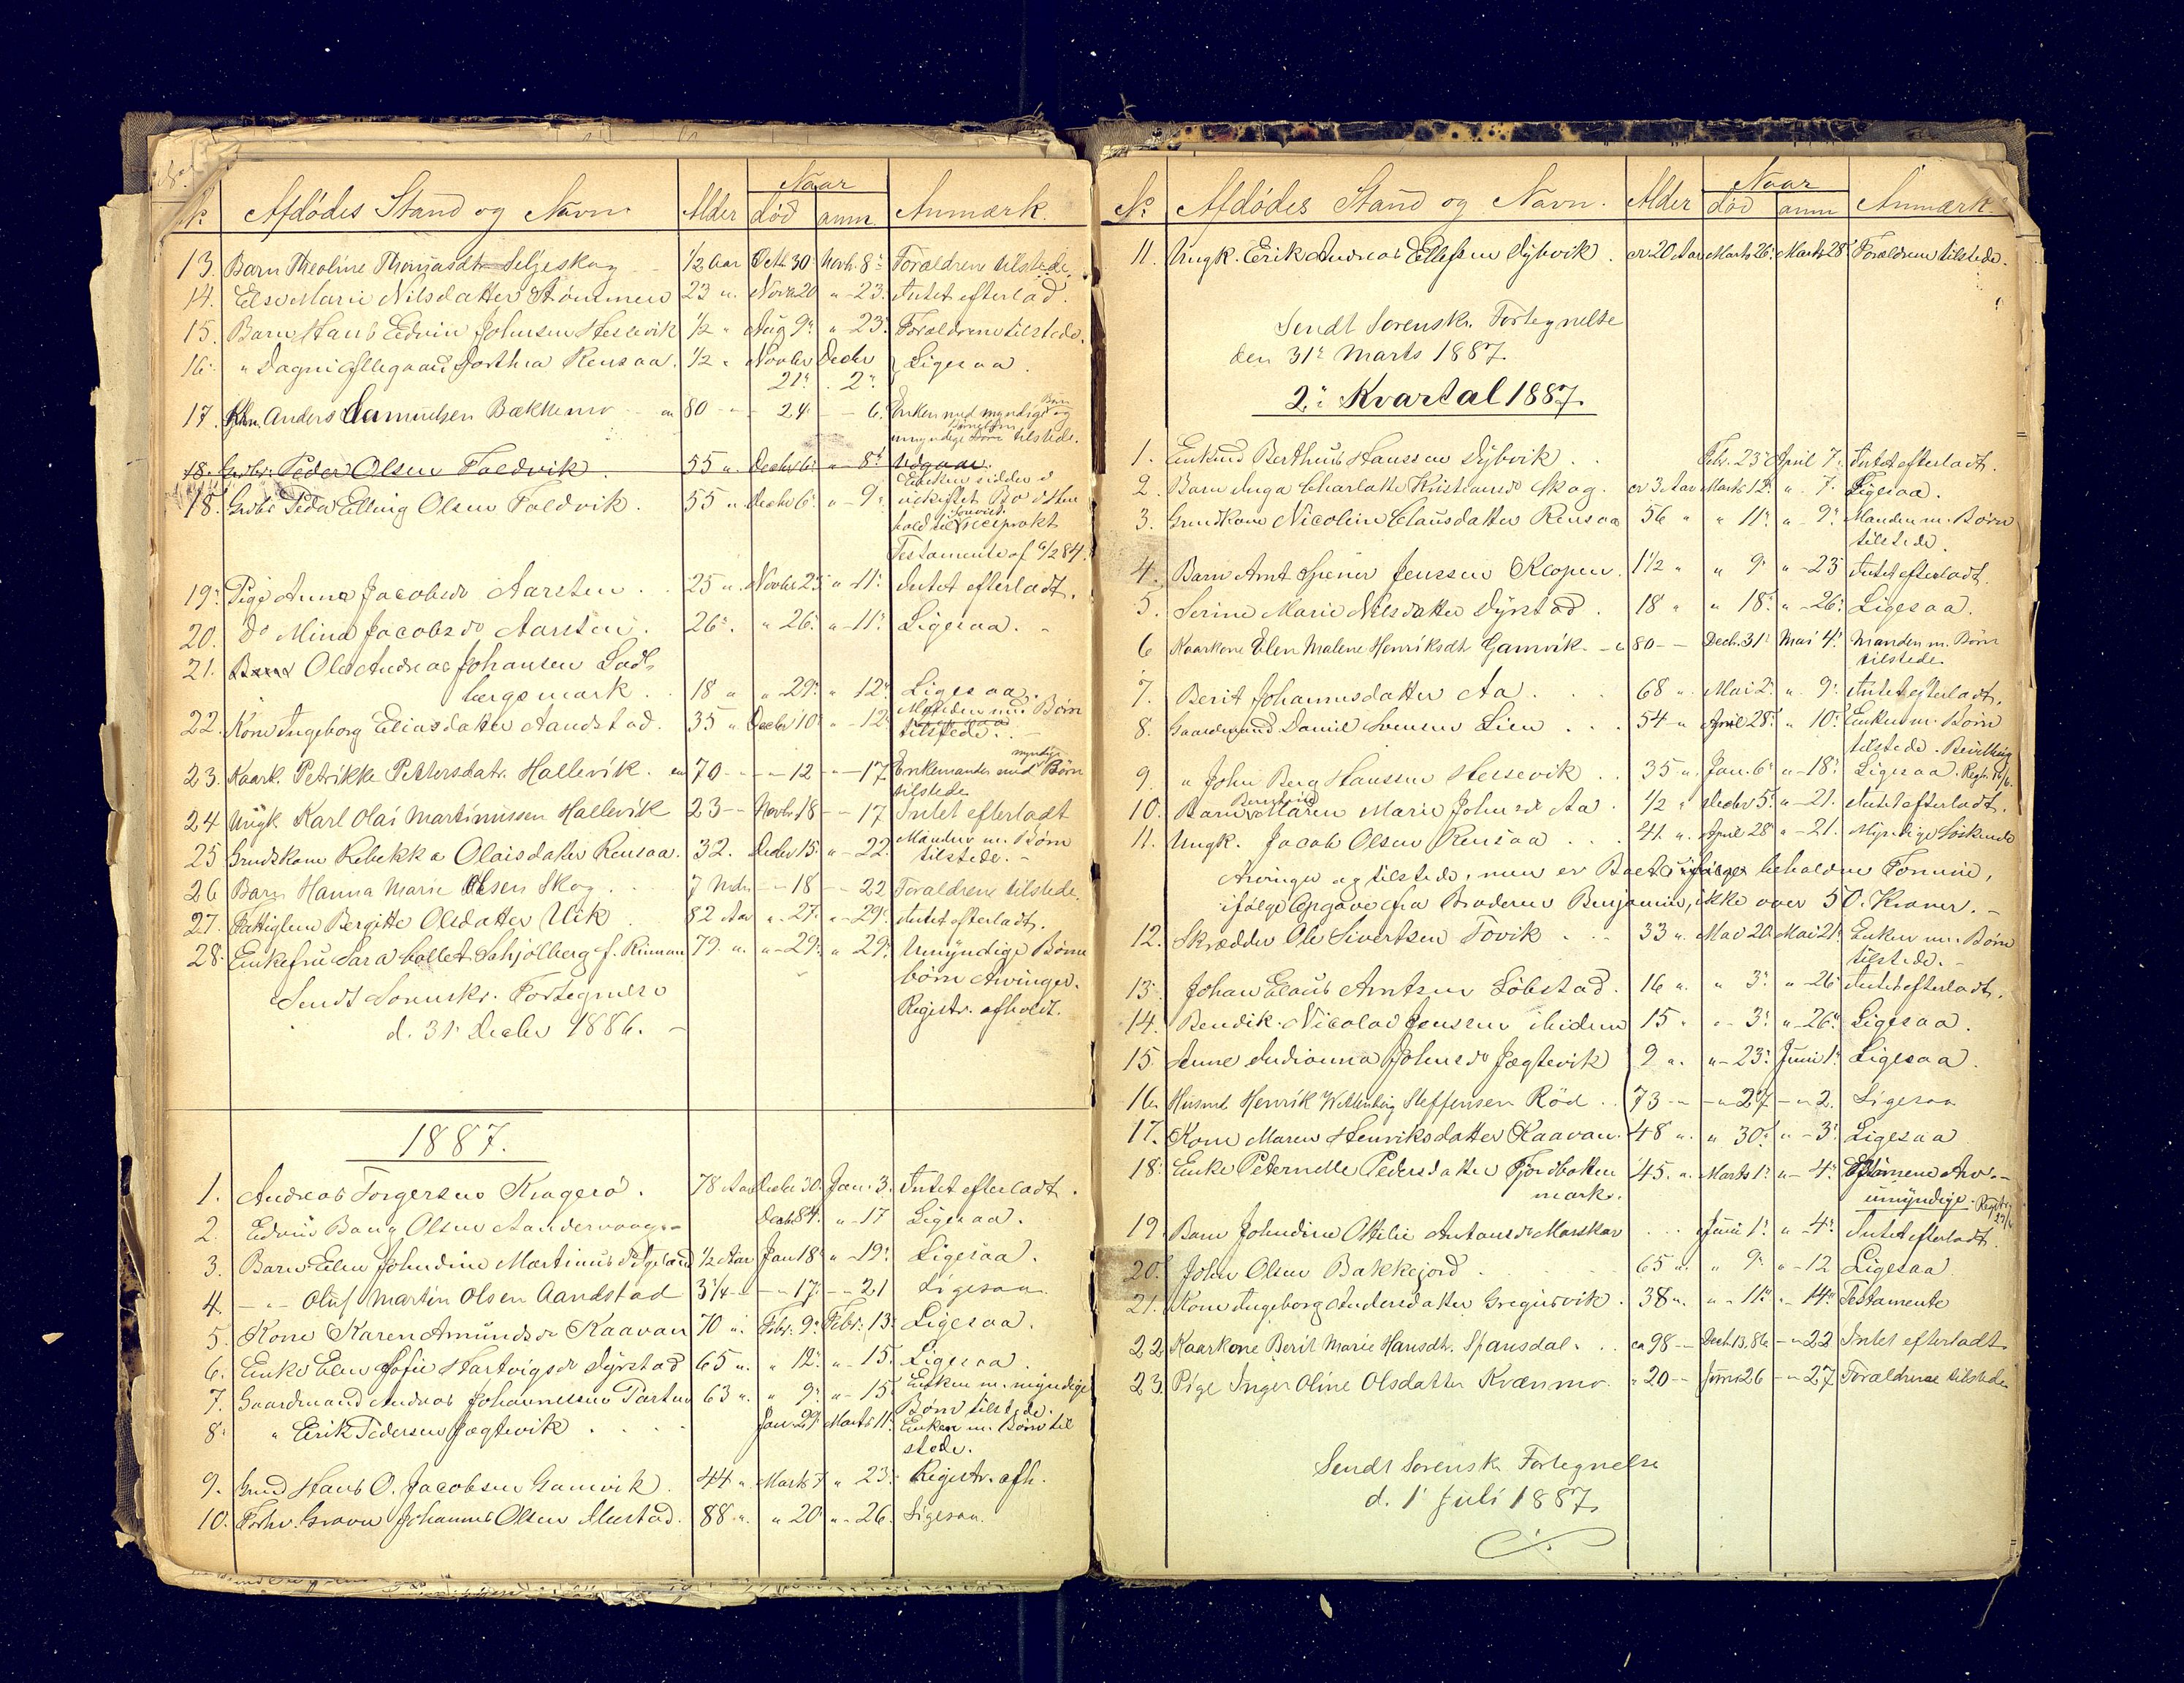 Naar
№ Afdødes Stand og Navn Alder død anm. Anmærk.
13. Barn Theoline Thomasdtr Seljeskog 1/2 Aar Octb 30 Novb. 8 Forældrene tilstede.
14. Else Marie Nilsdatter Strømmen 23 " Novb 20 " 23. Intet efterlad.
15. Barn Hans Edvin Johnsen Hessevik 1/2 " Aug 9 " 23. Forældrene tilstede.
16. " Dagni Dorthea Rensaa. 1/2 " Novbr Decbr Ligesaa.
21 2
17. Anders Samuelsen Bækkemo 80 - 24 - 6. Enken med myndige Børn og
umyndige tilstede.
18. Grdbr. Peder Olsen Foldvik 55 " Decbr 6 " 8 Udgaar.
Enken sidder i
18. Grdbr Peder Elling Olsen Foldvik. 55 " Decbr 6 " 9 uskiftet Bo i Hen
hold til
Testamente af 6/2 84.
19. Pige Anna Jacobsdr Aarsten. 25 " Novbr 25 " 11. Intet efterladt.
20. Do Mina Jacobsdr Aarsten. 26 " 26 " 11. Ligesaa.
21. Barn Ole Andreas Johansen Sal
bergsmark. 18 " " 29. " 12. Ligesaa.
22. Kone Ingeborg Eliasdatter Aandstad. 35 " Decbr 10 " 12 Manden med Børn
tilstede.
23. Kaark. Petrikke Pettersdatr. Hallevik. 70 - 12 - 17 Enkemanden med myndige Børn
tilstede
24 Ungk. Karl Olai Martinussen Hallevik 23 - Novbr 18 - 17 Intet efterladt
25 Grndskone Rebekka Olaisdatter Rensaa. 32. Decbr 15 " 22. Manden m. Børn
tilstede.
26 Barn Hanna Marie Olsen Skog. 7 Mdr - 18 - 22 Forældrene tilstede
27. Fattiglem Bergitte Olsdatter Vik 82 Aar " 27. " 29. Intet efterladt.
28. Enkefru Sara Collet Schjølberg f. Rinman 79. " " 29. " 29. Umyndige Børne
børn Arvinger.
Registr. afholdt.
Sendt Sorenskr. Fortegnelse
d. 31 Decbr 1886.
1887.
1. Andreas Torgersen Kragerø. 78 Aar Decbr 30. Jan. 3. Intet efterladt.
2. Edvin Bang Olsen Sandervaag Decb 84. " 17 Ligesaa.
3. Barn Elen Johndine Martinusdr 1/2 Aar Jan 18 " 19. Ligesaa.
4. " Oluf Martin Olsen Aandstad 3 1/4 - - 17. - 21 Ligesaa
5. Kone Karen Amundsdr Kaavan 70 " Febr. 9. Febr. 13. Ligesaa.
6. Enke Elen Sofie Hartvigsdr Dyrstad 65 " " 12. " 15. Ligesaa.
7. Gaardmand Andreas Johannessen Forten 63 " " 9. " 15 Enken m. myndige
Børn tilstede.
8. " Erik Pedersen Jegtevik Jan. 29. Marts 11. Enken m. Børn til
stede.
9. Grnd Hans O. Jacobsen Gamvik. 44 " Marts 7 " 23. Registr. afh.
10. Forhv. Graver Johannes Olsen Ibestad. 88 " " 20 " 26. Ligesaa.
Naar
№ Afdødes Stand og Navn. Alder død anm Anmærk.
11. Ungk. Erik Andreas Ellefsen Dybvik. 20 Aar Marts 26. Marts 28 Forældrene tilstede.
Sendt Sorenskr. Fortegnelse
den 31 Marts 1887.
2 Kvartal 1887.
1. Enkmd Berthus Hanssen Dybvik Febr. 23 April 7. Intet efterladt.
2. Barn Inga Charlotte Kristiansdr Skog. 3 Aar Marts 12 " 7. Ligesaa.
3. Grundkone Nicoline Clausdatter Rensaa 56 " " 11 " 9 Manden m. Børn
tilstede.
4. Barn Arnt Spener Jenssen Klopen. 1 1/2 " " 9 " 23 Intet efterladt.
5. Serine Marie Nilsdatter Dyrstad. 18 " " 18. " 26. Ligesaa.
6 Kaarkone Elen Malene Henriksdtr Gamvik. 80 - Decb. 31 Mai 4. Manden m. Børn
tilstede.
7. Berit Johannesdatter Aa. 68 " Mai 2. " 9. Intet efterladt.
8. Gaardmand Daniel Svensen Lien 54 " April 28. " 10. Enken m. Børn
tilstede. Bevilling
9. " John Berg Hanssen Hessevik 35 " Jan. 6 " 18. Ligesaa.
10. Barn Maren Marie Johnsdr Aa. 1/2 " Decbr 5. " 21. Intet efterladt.
11. Ungk. Jacob Olsen Rensaa 41. " April 28 " 21. Myndige Søskende
Arvinger og tilstede, men er Boets beholdne Formue,
ifølge Opgave fra Broderen Benjamin, ikke over 50 Kroner.
12. Skrædder Ole Sivertsen Tovik 33 " Mai 20 Mai 21. Enken m. Børn
tilstede.
13. Johan Claus Arntzen Løbstad. 16 " " 3. " 26 Intet efterladt.
14. Bendik Nicolai Jenssen 15 " " 3. " 26. Ligesaa.
15 Anne Andianna Johnsdr Jegtevik 9 " " 23. Juni 1. Ligesaa.
16. Husmd. Henrik Wittenberg Steffensen Rød. 73 - - 27 - 2. Ligesaa
17. Kone Maren Henriksdatter Kaavan. 48 " " 30. " 3. Ligesaa
18. Enke Peternelle Pedersdatter Fjordbotten
mark. 45 " Marts 1. " 4. Børnene Arv.
umyndige.
19 Barn Johndine Ottilie Antonsdr Marskar Juni 1. " 4. Intet efterladt.
20. John Olsen Bakkejord 65 " " 9. " 12 Ligesaa
21. Kone Ingeborg Andersdatter Gregusvik. 38 " " 11. " 14. Testamente
22 Kaarkone Berit Marie Hansdtr. Spansdal. ca 98 - Decb 13. 86. - 22 Intet efterladt
23. Pige Inger Oline Olsdatter Kvænmo. " 20 - Juni 26 - 27 Forældrene tilstede
Sendt Sorenskr Fortegnelse
d. 1 Juli 1887.